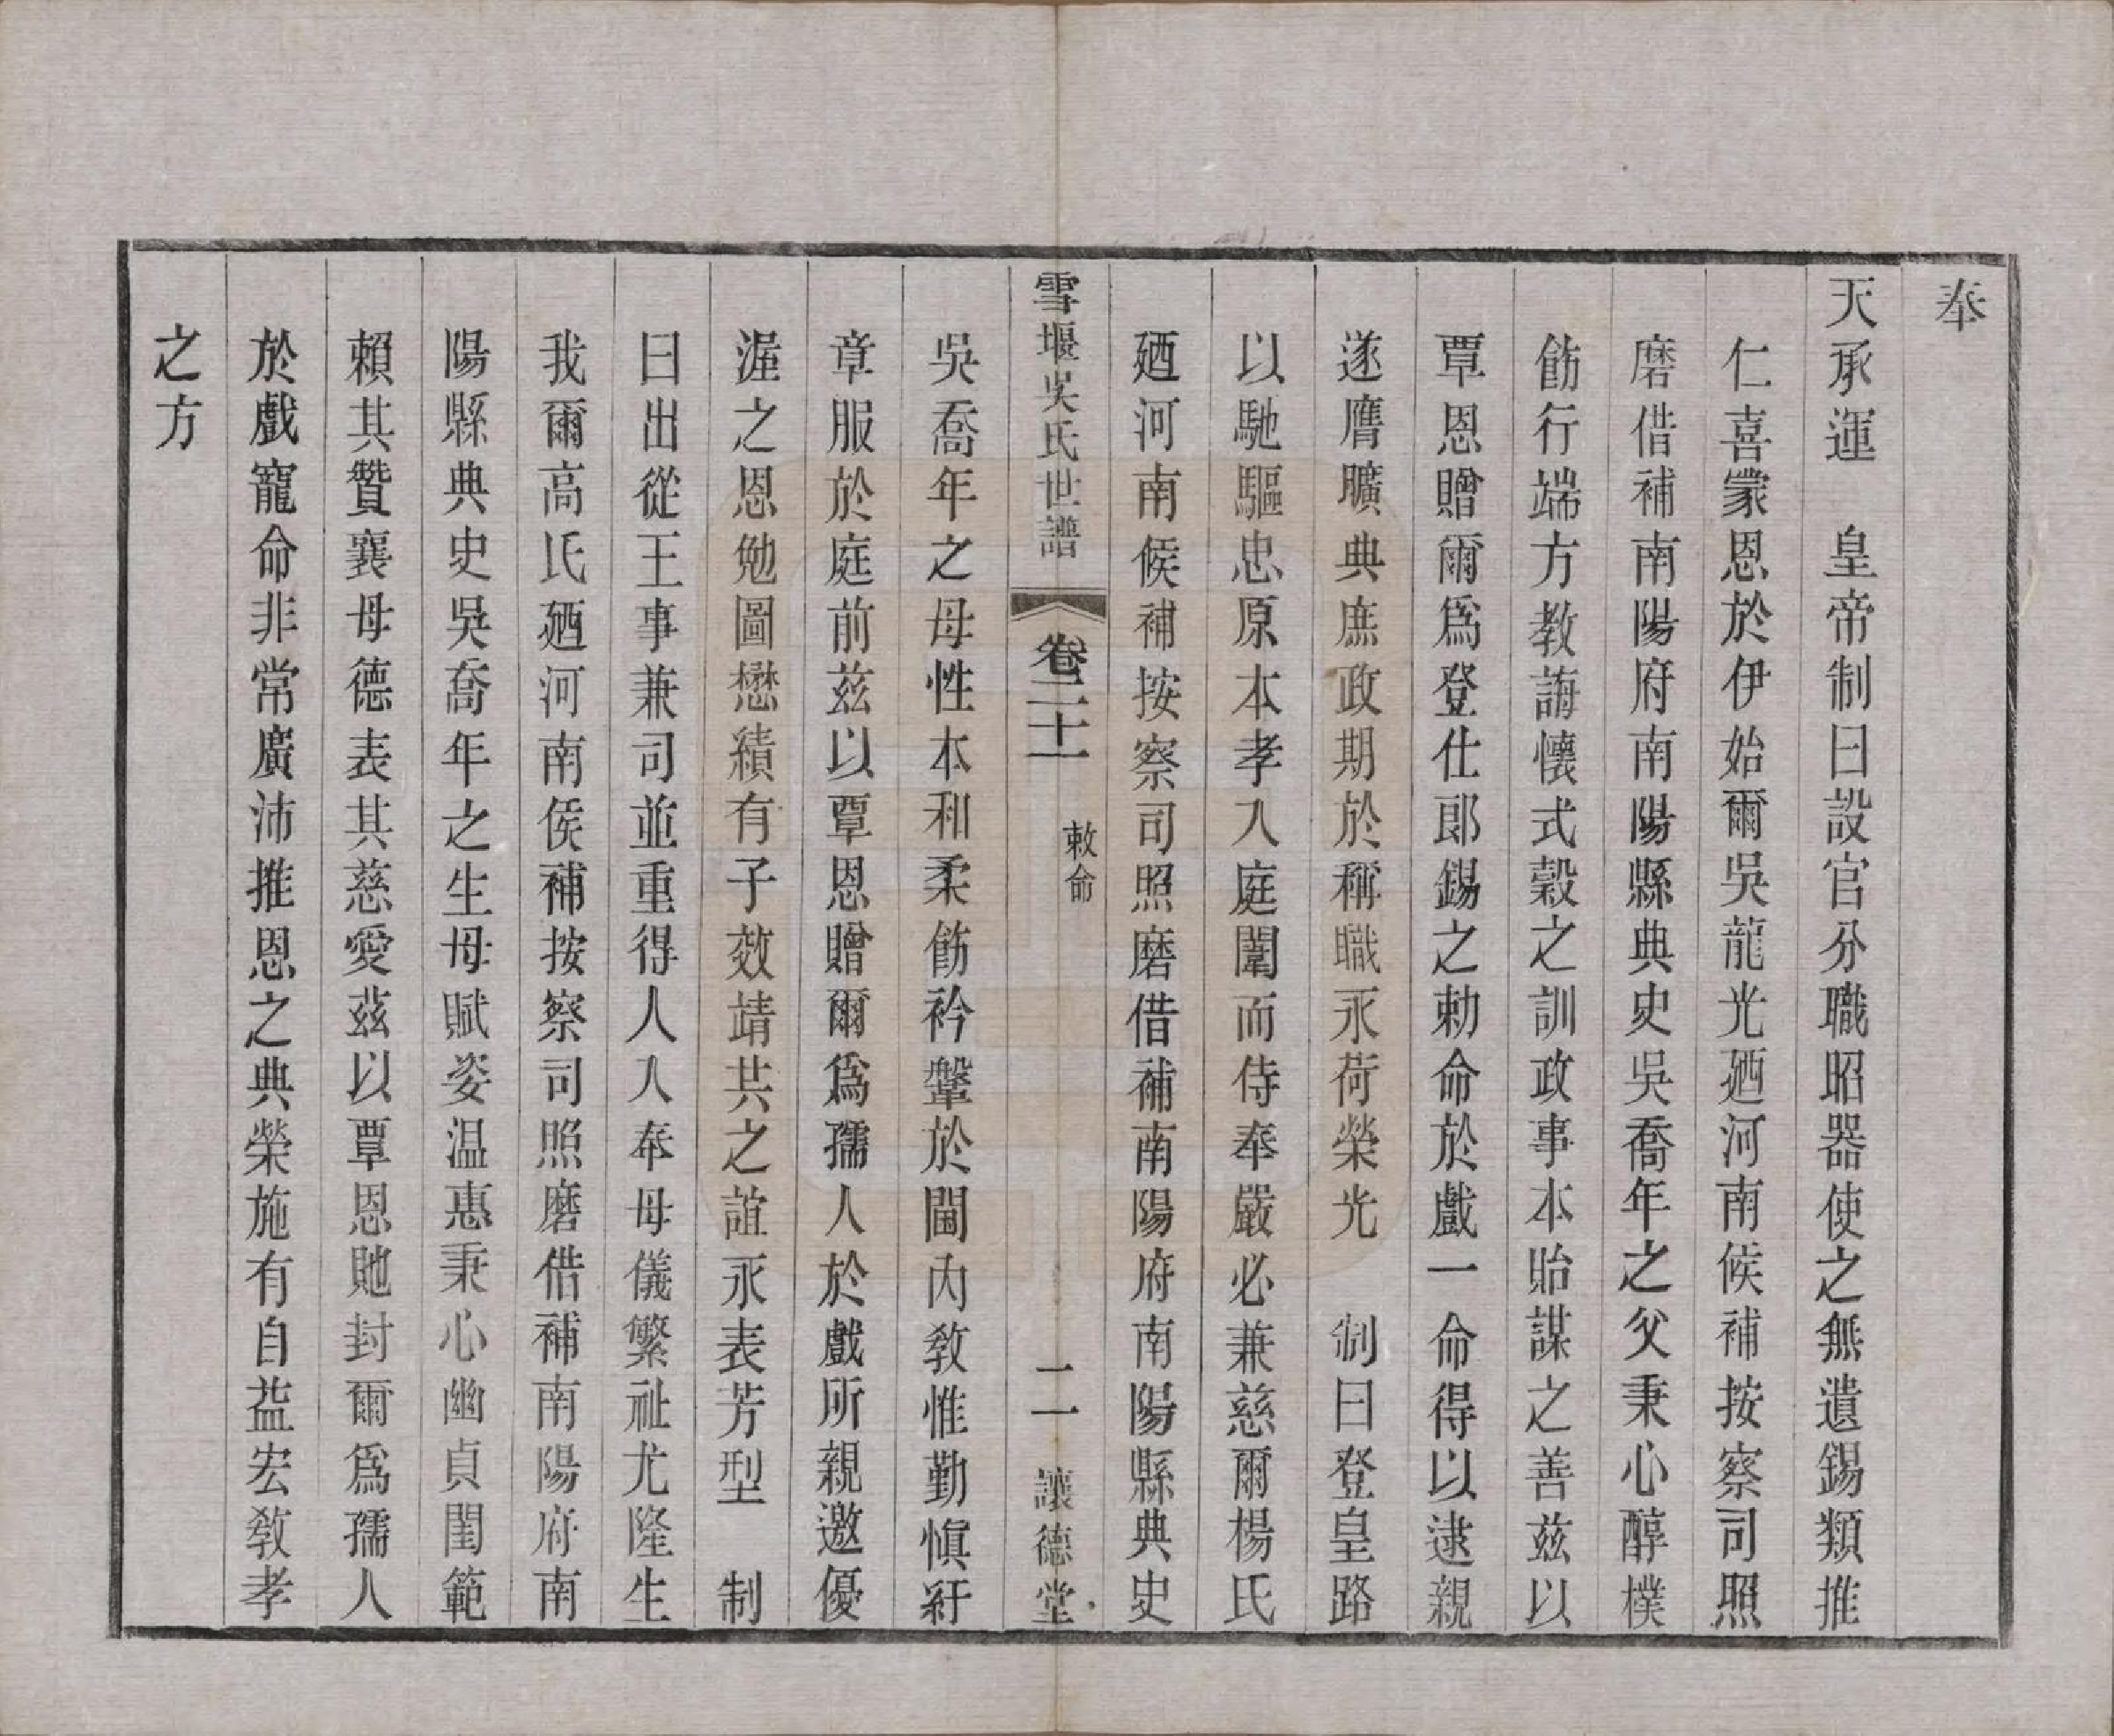 奉
天承運　皇帝制曰設官分職昭器使之無遺錫類推
仁喜霥恩於伊始爾吳龍光廼河南候補按察司照
磨借補南陽府南陽縣典史吳喬年之父秉心醇樸
飭行端方教誨懷式穀之訓政事本貽謀之善茲以
覃恩贈爾爲登仕郎錫之勅命於戲一命得以逮親
遂膺曠典庶政期於稱職永荷榮光　制曰登皇路
以馳驅忠原本孝入庭闈而侍奉嚴必兼慈爾楊氏
廼河南候補按察司照磨借補南陽府南陽縣典史
雪堰吳氏世譜　卷二十一　敕命　二　讓德堂
吳喬年之母性本和柔飭衿鞶於閫內教惟勤愼紆
章服於庭前茲以覃恩贈爾爲孺人於戲所親邀優
渥之恩勉圖懋績有子效靖共之誼永表芳型　制
曰出從王事兼司並重得人入奉母儀繁祉尤隆生
我爾高氏廼河南侯補按察司照磨借補南陽府南
陽縣典史吳喬年之生母賦姿温惠秉心幽貞閨範
賴其贊襄母德表其慈愛茲以覃恩貤封爾爲孺人
於戲寵命非常廣沛推恩之典榮施有自益宏敎孝
之方